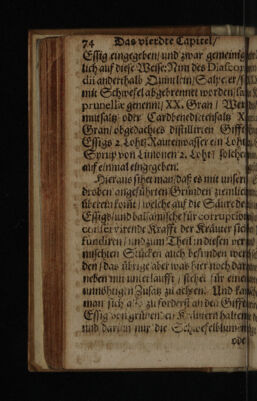 74 Das vierdte Capitel/
Essig eingegeben/ und zwar gemeinig
lich auf diese Weise: Nim des Diascor
dii anderthalb Quintlein/ Salpeter/
mit Schwefel abgebrennt worden/
prunellæ genennt/ XX. Gran/ Wer
mutsaltz oder Cardbenedictensaltz X
Gran/ obgedachtes distillirten Gifft
Essigs 2. Loht/ Rautenwasser ein Loht
Syrup von Limonen 2. Loht/ solches
auf einmal eingegeben.
Hieraus sihet man/ daß es mit unsern
droben angeführten Gründen ziemlich
überein komt/ welche auf die Säure des
Essigs/ und balsamische für corruption
conservirende Krafft der Kräuter sich
fundiren/ und zum Theil in diesen ver
mischten Stücken auch befunden wer
den/ das übrige aber was hier noch dar
neben mit unterlaufft/ für ein
unnöhtigen Zusatz zu achten. Und kan
man sich also zu forderst an den Gifft
Essig von grünen Kräutern halten
und darinn nur die Schwefelblumen
ode